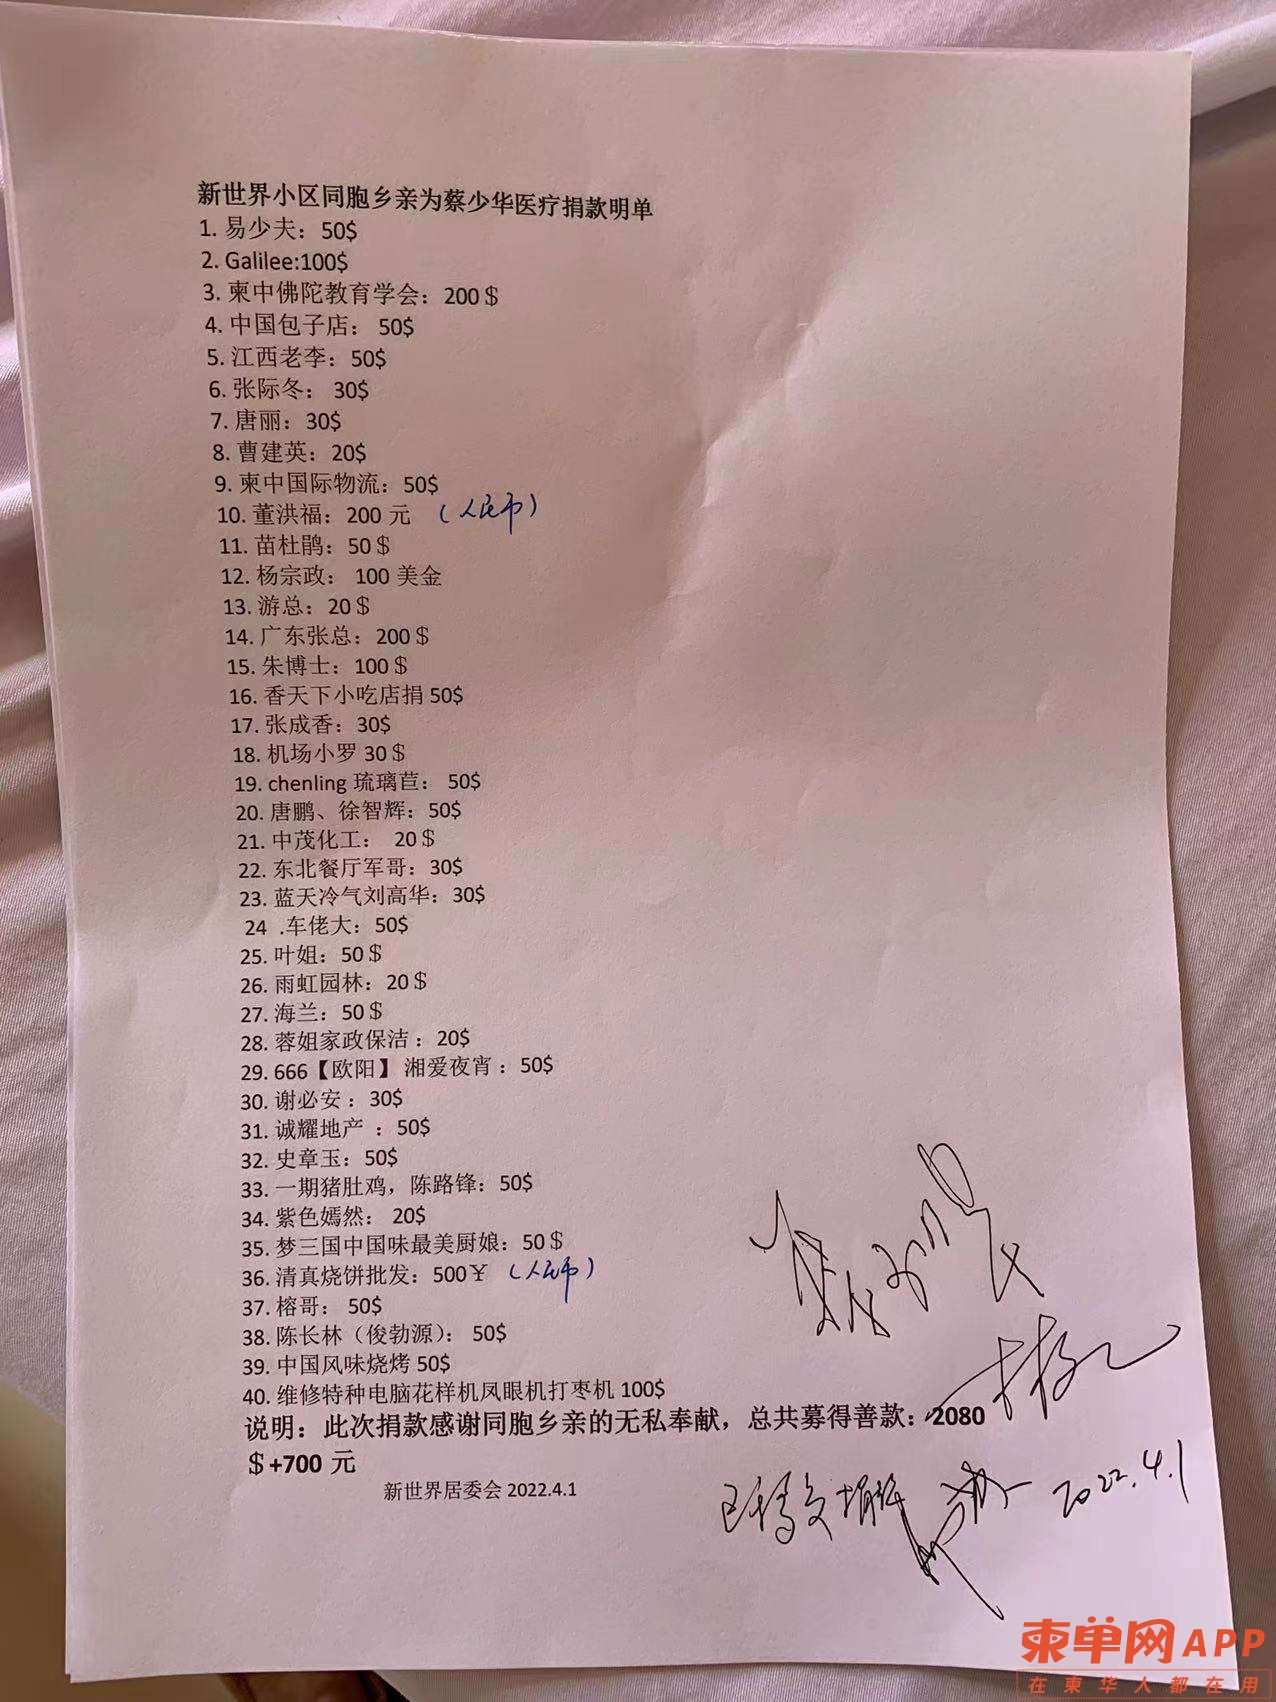 新世界小区同胞乡亲为蔡少华医疗捐款明单
1. 易少夫：50$
2. Galilee:100$
3. 柬中佛陀教育学会：200＄
4. 中国包子店： 50$
5. 江西老李：50$
6. 张际冬： 30$
7. 唐丽：30$
8. 曹建英：20$
9. 柬中国际物流：50$
10. 董洪福：200 元 （人民币）
11. 苗杜鹃：50＄
12. 杨宗政： 100 美金
13. 游总：20＄
14. 广东张总：200＄
15. 朱博士：100＄
16. 香天下小吃店捐 50$
17. 张成香：30$
18. 机场小罗 30＄
19. chenling 琉璃苣： 50$
20. 唐鹏、徐智辉：50$
21. 中茂化工： 20＄
22. 东北餐厅军哥：30$
23. 蓝天冷气刘高华：30$
24 .车佬大：50$
25. 叶姐：50＄
26. 雨虹园林：20＄
27. 海兰：50＄
28. 蓉姐家政保洁 ：20$
29. 666【欧阳】 湘爱夜宵 ：50$
30. 谢必安 ：30$
31. 诚耀地产 ：50$
32. 史章玉：50$
33. 一期猪肚鸡，陈路锋：50$
34. 紫色嫣然： 20$
35. 梦三国中国味最美厨娘：50＄
36. 清真烧饼批发：500￥ （人民币）
37. 榕哥： 50$
38. 陈长林（俊勃源）： 50$
39. 中国风味烧烤 50$
40. 维修特种电脑花样机凤眼机打枣机 100$
说明：此次捐款感谢同胞乡亲的无私奉献，总共募得善款：2080
＄+700 元
新世界居委会 2022.4.1
2022.4.1
柬单网APP
在柬华人都在用